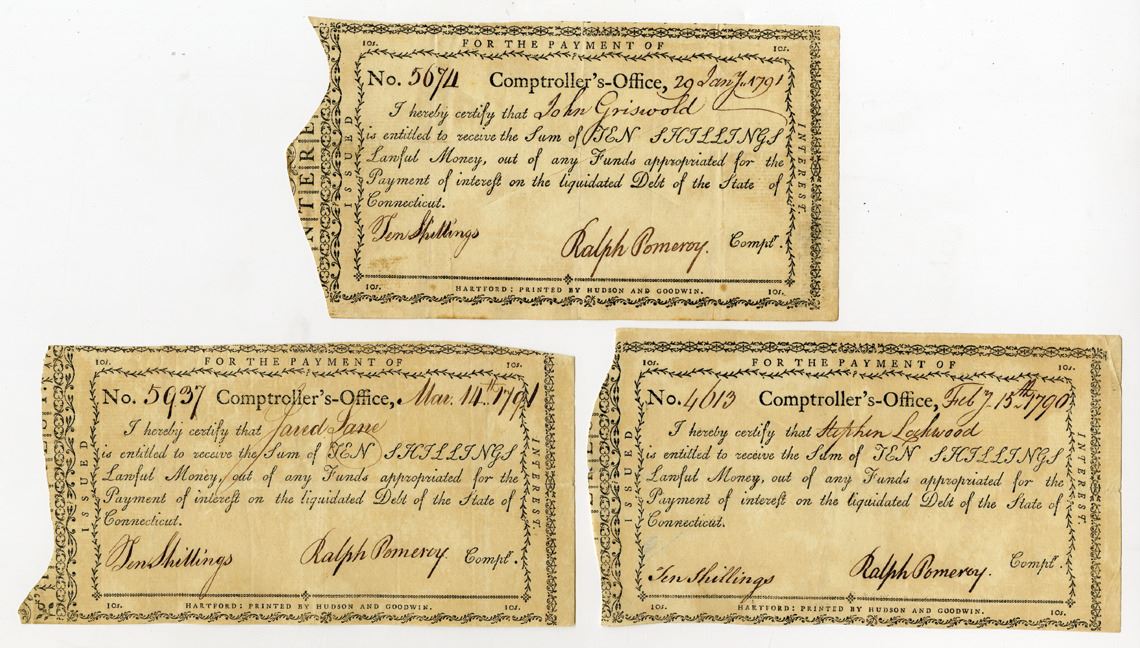 10s. FOR THE PAYMENT OF 10s.
No. 5674 Comptroller's-Office, 29 Jany. 1791
I hereby certify that John Griswold
is entitled to receive the Sum of TEN SHILLINGS
Lawful Money, out of any Funds appropriated for the
Payment of interest on the liquidated Debt of the State of
Connecticut.
Ten Shillings Ralph Pomeroy. Comptr.
10s. HARTFORD: PRINTED BY HUDSON AND GOODWIN. 10s.
ISSUED
INTEREST.
INTERE
10s. FOR THE PAYMENT OF 10s.
No. 5937 Comptroller's-Office, Mar. 14th 1791
I hereby certify that Jared Lane
is entitled to receive the Sum of TEN SHILLINGS
Lawful Money, out of any Funds appropriated for the
Payment of interest on the liquidated Debt of the State of
Connecticut.
Ten Shillings Ralph Pomeroy. Comptr.
10s. HARTFORD: PRINTED BY HUDSON AND GOODWIN. 10s.
ISSUED
INTEREST.
10s. FOR THE PAYMENT OF 10s.
No. 4613 Comptroller's-Office, Feby. 15th 1790
I hereby certify that Stephen Lockwood
is entitled to receive the Sum of TEN SHILLINGS
Lawful Money, out of any Funds appropriated for the
Payment of interest on the liquidated Debt of the State of
Connecticut.
Ten Shillings Ralph Pomeroy. Comptr.
10s. HARTFORD: PRINTED BY HUDSON AND GOODWIN. 10s.
ISSUED
INTEREST.